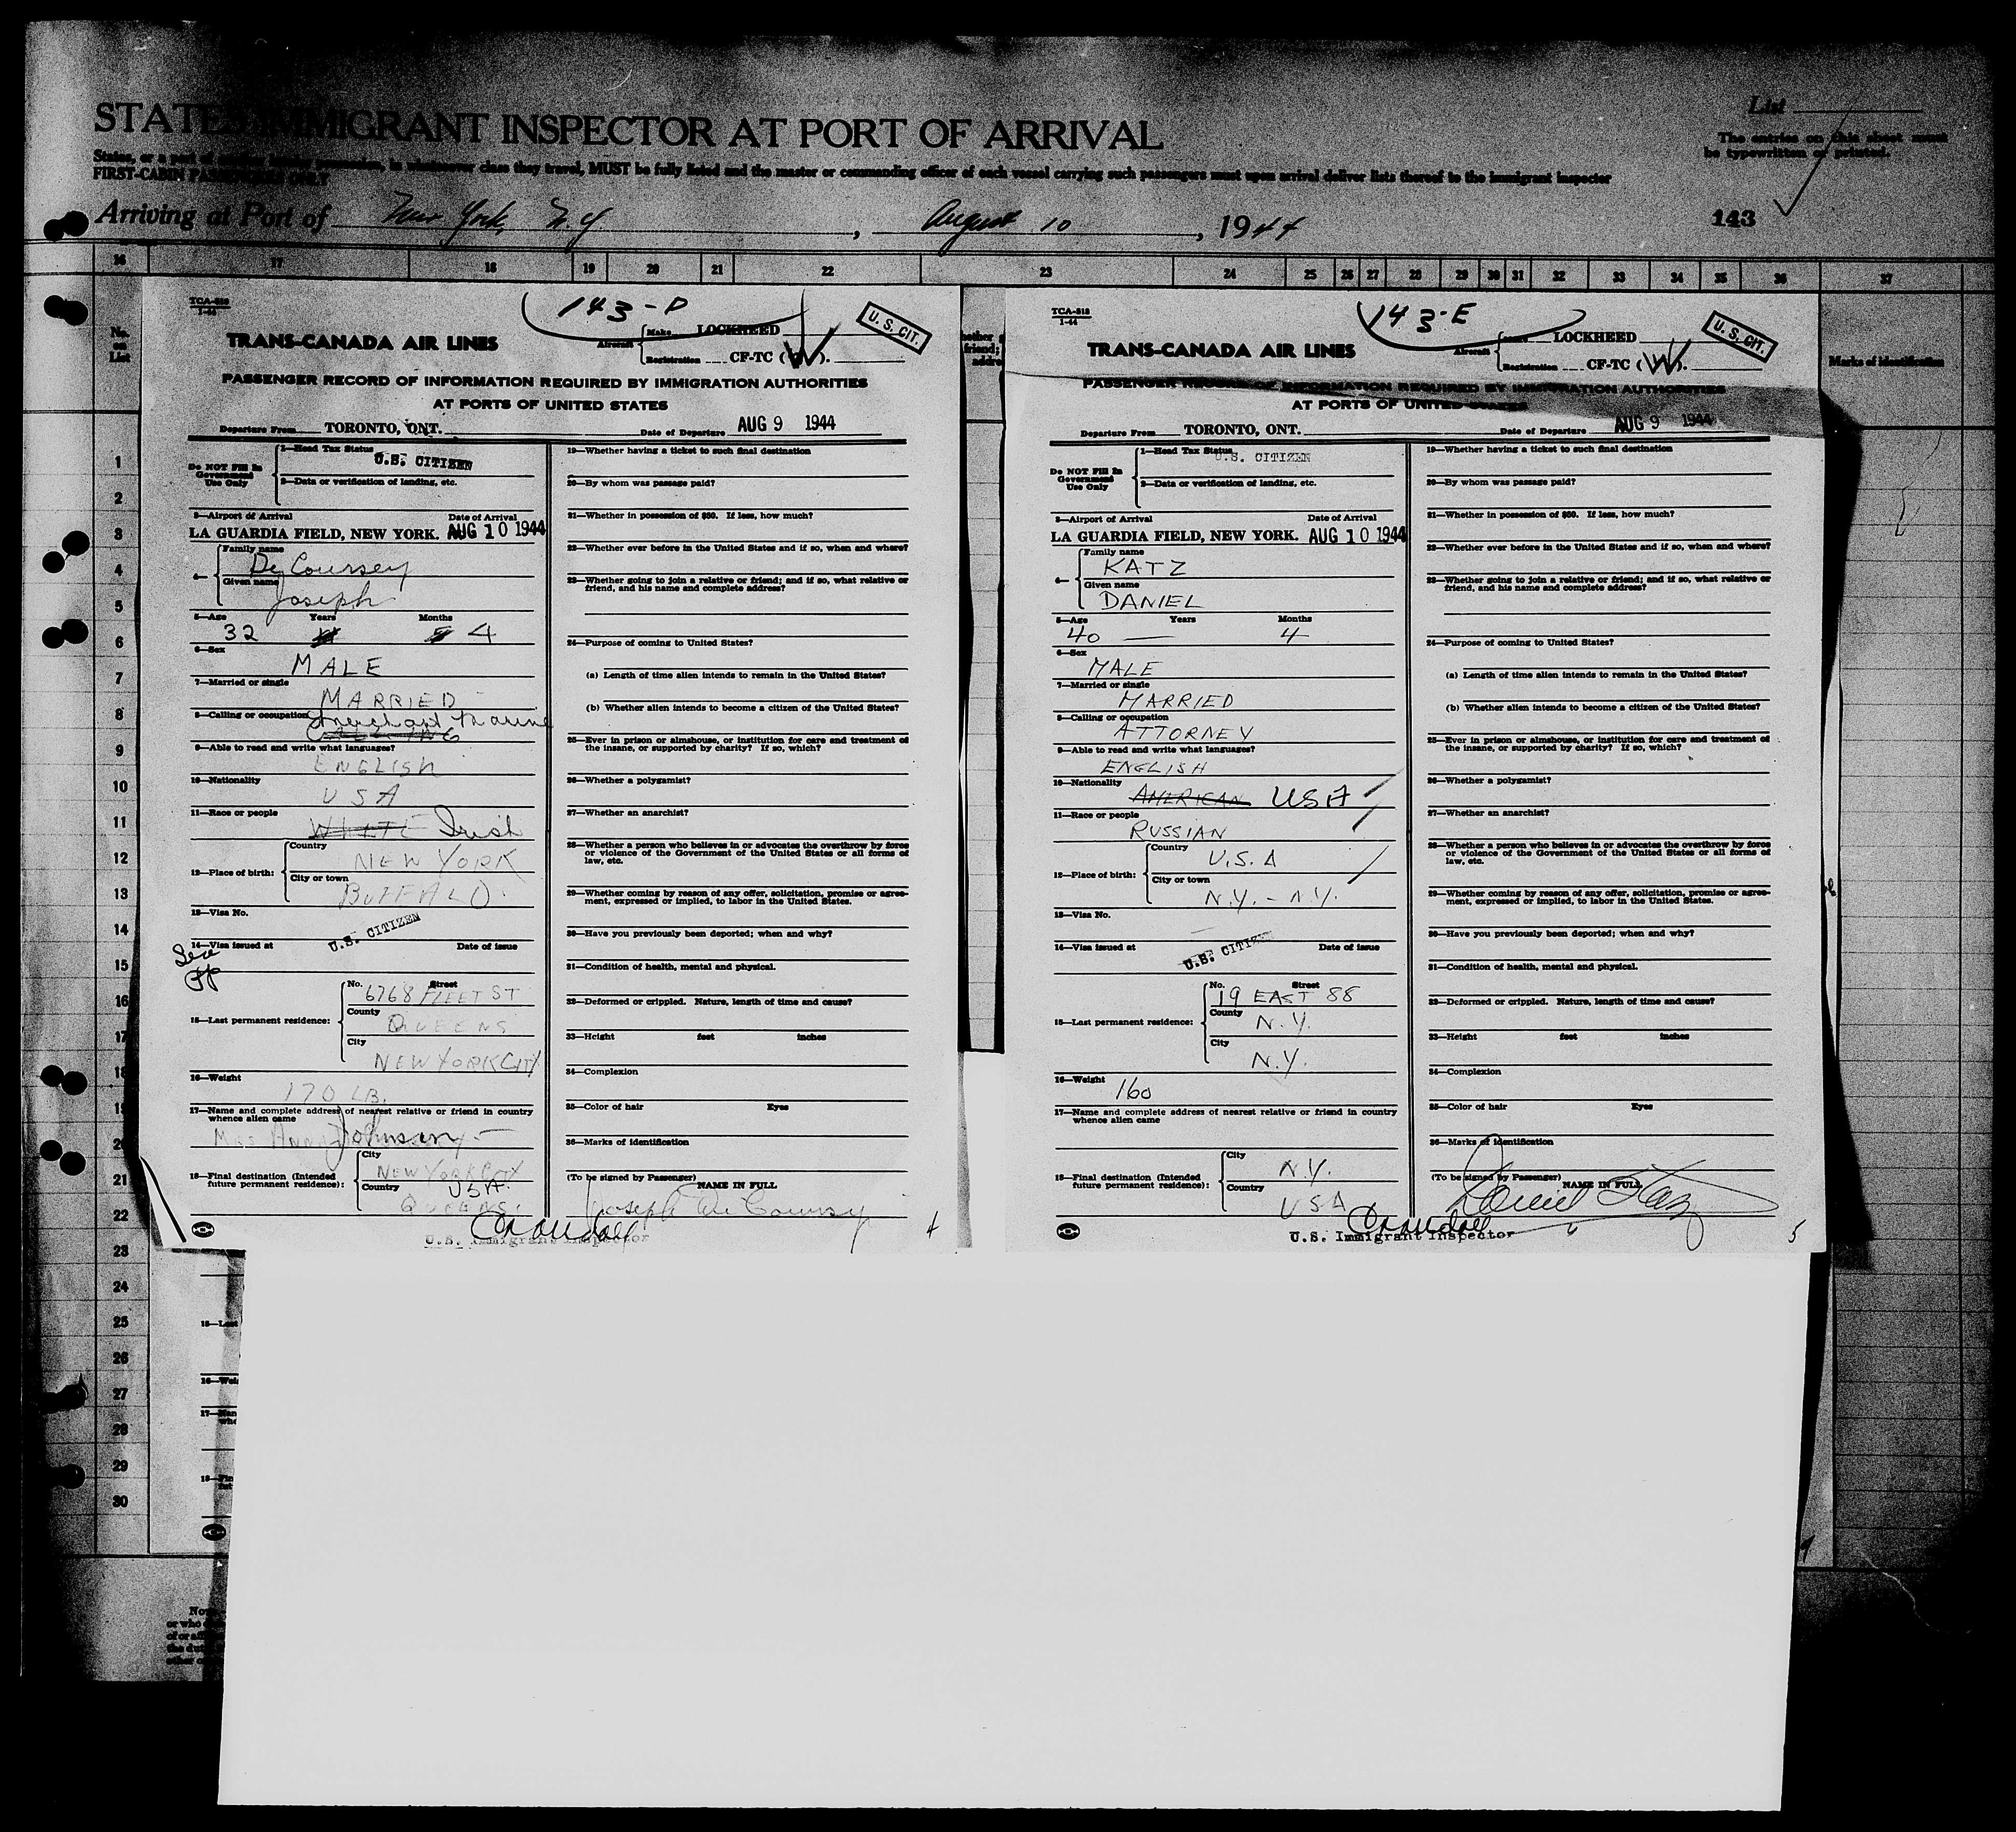 STATES IMMIGRANT INSPECTOR AT PORT OF ARRIVAL
List
The entries on this sheet must
be typewritten or printed.
possession, in whatsoever class they travel, MUST be fully listed and the master or commanding officer of each vessel carrying such passengers must upon arrival deliver lists thereof to the immigrant inspector
FIRST-CABIN PASSENGERS ONLY
Arriving at Port of New York, N.Y. , August 10 , 1944
143
16 17 18 19 20 21 22 23 24 25 26 27 28 29 30 31 32 33 34 35 36 37
No.
on
List
Marks of identification
1
2
3
4
5
6
7
8
9
10
11
12
13
14
15
16
17
18
19
20
21
22
23
24
25
26
27
28
29
30
TCA-518
1-44
143-D
U. S. CIT.
TRANS-CANADA AIR LINES
Aircraft
Make LOCKHEED
Registration CF-TC (W).
PASSENGER RECORD OF INFORMATION REQUIRED BY IMMIGRATION AUTHORITIES
AT PORTS OF UNITED STATES
Departure From TORONTO, ONT. Date of Departure AUG 9 1944
Do NOT Fill In
Government
Use Only
1—Head Tax Status U.S. CITIZEN
2—Data or verification of landing, etc.
3—Airport of Arrival Date of Arrival
LA GUARDIA FIELD, NEW YORK. AUG 10 1944
4—
Family name
De Coursey
Given name
Joseph
5—Age Years Months
32 4
6—Sex
MALE
7—Married or single
MARRIED
8—Calling or occupation Merchant Marine
9—Able to read and write what languages?
ENGLISH
10—Nationality
USA
11—Race or people
WHITE Irish
12—Place of birth:
Country
NEW YORK
City or town
BUFFALO.
13—Visa No.
U.S. CITIZEN
14—Visa issued at Date of issue
See
15—Last permanent residence:
No. Street
6768 FLEET ST
County
QUEENS
City
NEW YORK CITY
16—Weight
170 LB.
17—Name and complete address of nearest relative or friend in country
whence alien came
Mrs Anna Johnson
18—Final destination (Intended
future permanent residence):
City
NEW YORK CITY
Country USA.
QUEENS.
19—Whether having a ticket to such final destination
20—By whom was passage paid?
21—Whether in possession of $50. If less, how much?
22—Whether ever before in the United States and if so, when and where?
23—Whether going to join a relative or friend; and if so, what relative or
friend, and his name and complete address?
24—Purpose of coming to United States?
(a) Length of time alien intends to remain in the United States?
(b) Whether alien intends to become a citizen of the United States?
25—Ever in prison or almshouse, or institution for care and treatment of
the insane, or supported by charity? If so, which?
26—Whether a polygamist?
27—Whether an anarchist?
28—Whether a person who believes in or advocates the overthrow by force
or violence of the Government of the United States or all forms of
law, etc.
29—Whether coming by reason of any offer, solicitation, promise or agree-
ment, expressed or implied, to labor in the United States.
30—Have you previously been deported; when and why?
31—Condition of health, mental and physical.
32—Deformed or crippled. Nature, length of time and cause?
33—Height feet inches
34—Complexion
35—Color of hair Eyes
36—Marks of identification
(To be signed by Passenger)
NAME IN FULL
Joseph De Coursey
Crandall
U.S. Immigrant Inspector
4
TCA-518
1-44
143-E
U. S. CIT.
TRANS-CANADA AIR LINES
Aircraft
Make LOCKHEED
Registration CF-TC (W).
PASSENGER RECORD OF INFORMATION REQUIRED BY IMMIGRATION AUTHORITIES
AT PORTS OF UNITED STATES
Departure From TORONTO, ONT. Date of Departure AUG 9 1944
Do NOT Fill In
Government
Use Only
1—Head Tax Status U.S. CITIZEN
2—Data or verification of landing, etc.
3—Airport of Arrival Date of Arrival
LA GUARDIA FIELD, NEW YORK. AUG 10 1944
4—
Family name
KATZ
Given name
DANIEL
5—Age Years Months
40 — 4
6—Sex
MALE
7—Married or single
MARRIED
8—Calling or occupation
ATTORNEY
9—Able to read and write what languages?
ENGLISH
10—Nationality
AMERICAN USA
11—Race or people
RUSSIAN
12—Place of birth:
Country
U.S.A
City or town
N.Y. - N.Y.
13—Visa No.
14—Visa issued at Date of issue
U.S. CITIZEN
15—Last permanent residence:
No. Street
19 EAST 88
County
N.Y.
City
N.Y.
16—Weight
160
17—Name and complete address of nearest relative or friend in country
whence alien came
18—Final destination (Intended
future permanent residence):
City
N.Y.
Country
USA
19—Whether having a ticket to such final destination
20—By whom was passage paid?
21—Whether in possession of $50. If less, how much?
22—Whether ever before in the United States and if so, when and where?
23—Whether going to join a relative or friend; and if so, what relative or
friend, and his name and complete address?
24—Purpose of coming to United States?
(a) Length of time alien intends to remain in the United States?
(b) Whether alien intends to become a citizen of the United States?
25—Ever in prison or almshouse, or institution for care and treatment of
the insane, or supported by charity? If so, which?
26—Whether a polygamist?
27—Whether an anarchist?
28—Whether a person who believes in or advocates the overthrow by force
or violence of the Government of the United States or all forms of
law, etc.
29—Whether coming by reason of any offer, solicitation, promise or agree-
ment, expressed or implied, to labor in the United States.
30—Have you previously been deported; when and why?
31—Condition of health, mental and physical.
32—Deformed or crippled. Nature, length of time and cause?
33—Height feet inches
34—Complexion
35—Color of hair Eyes
36—Marks of identification
(To be signed by Passenger)
NAME IN FULL
Daniel Katz
Crandall
U.S. Immigrant Inspector
5